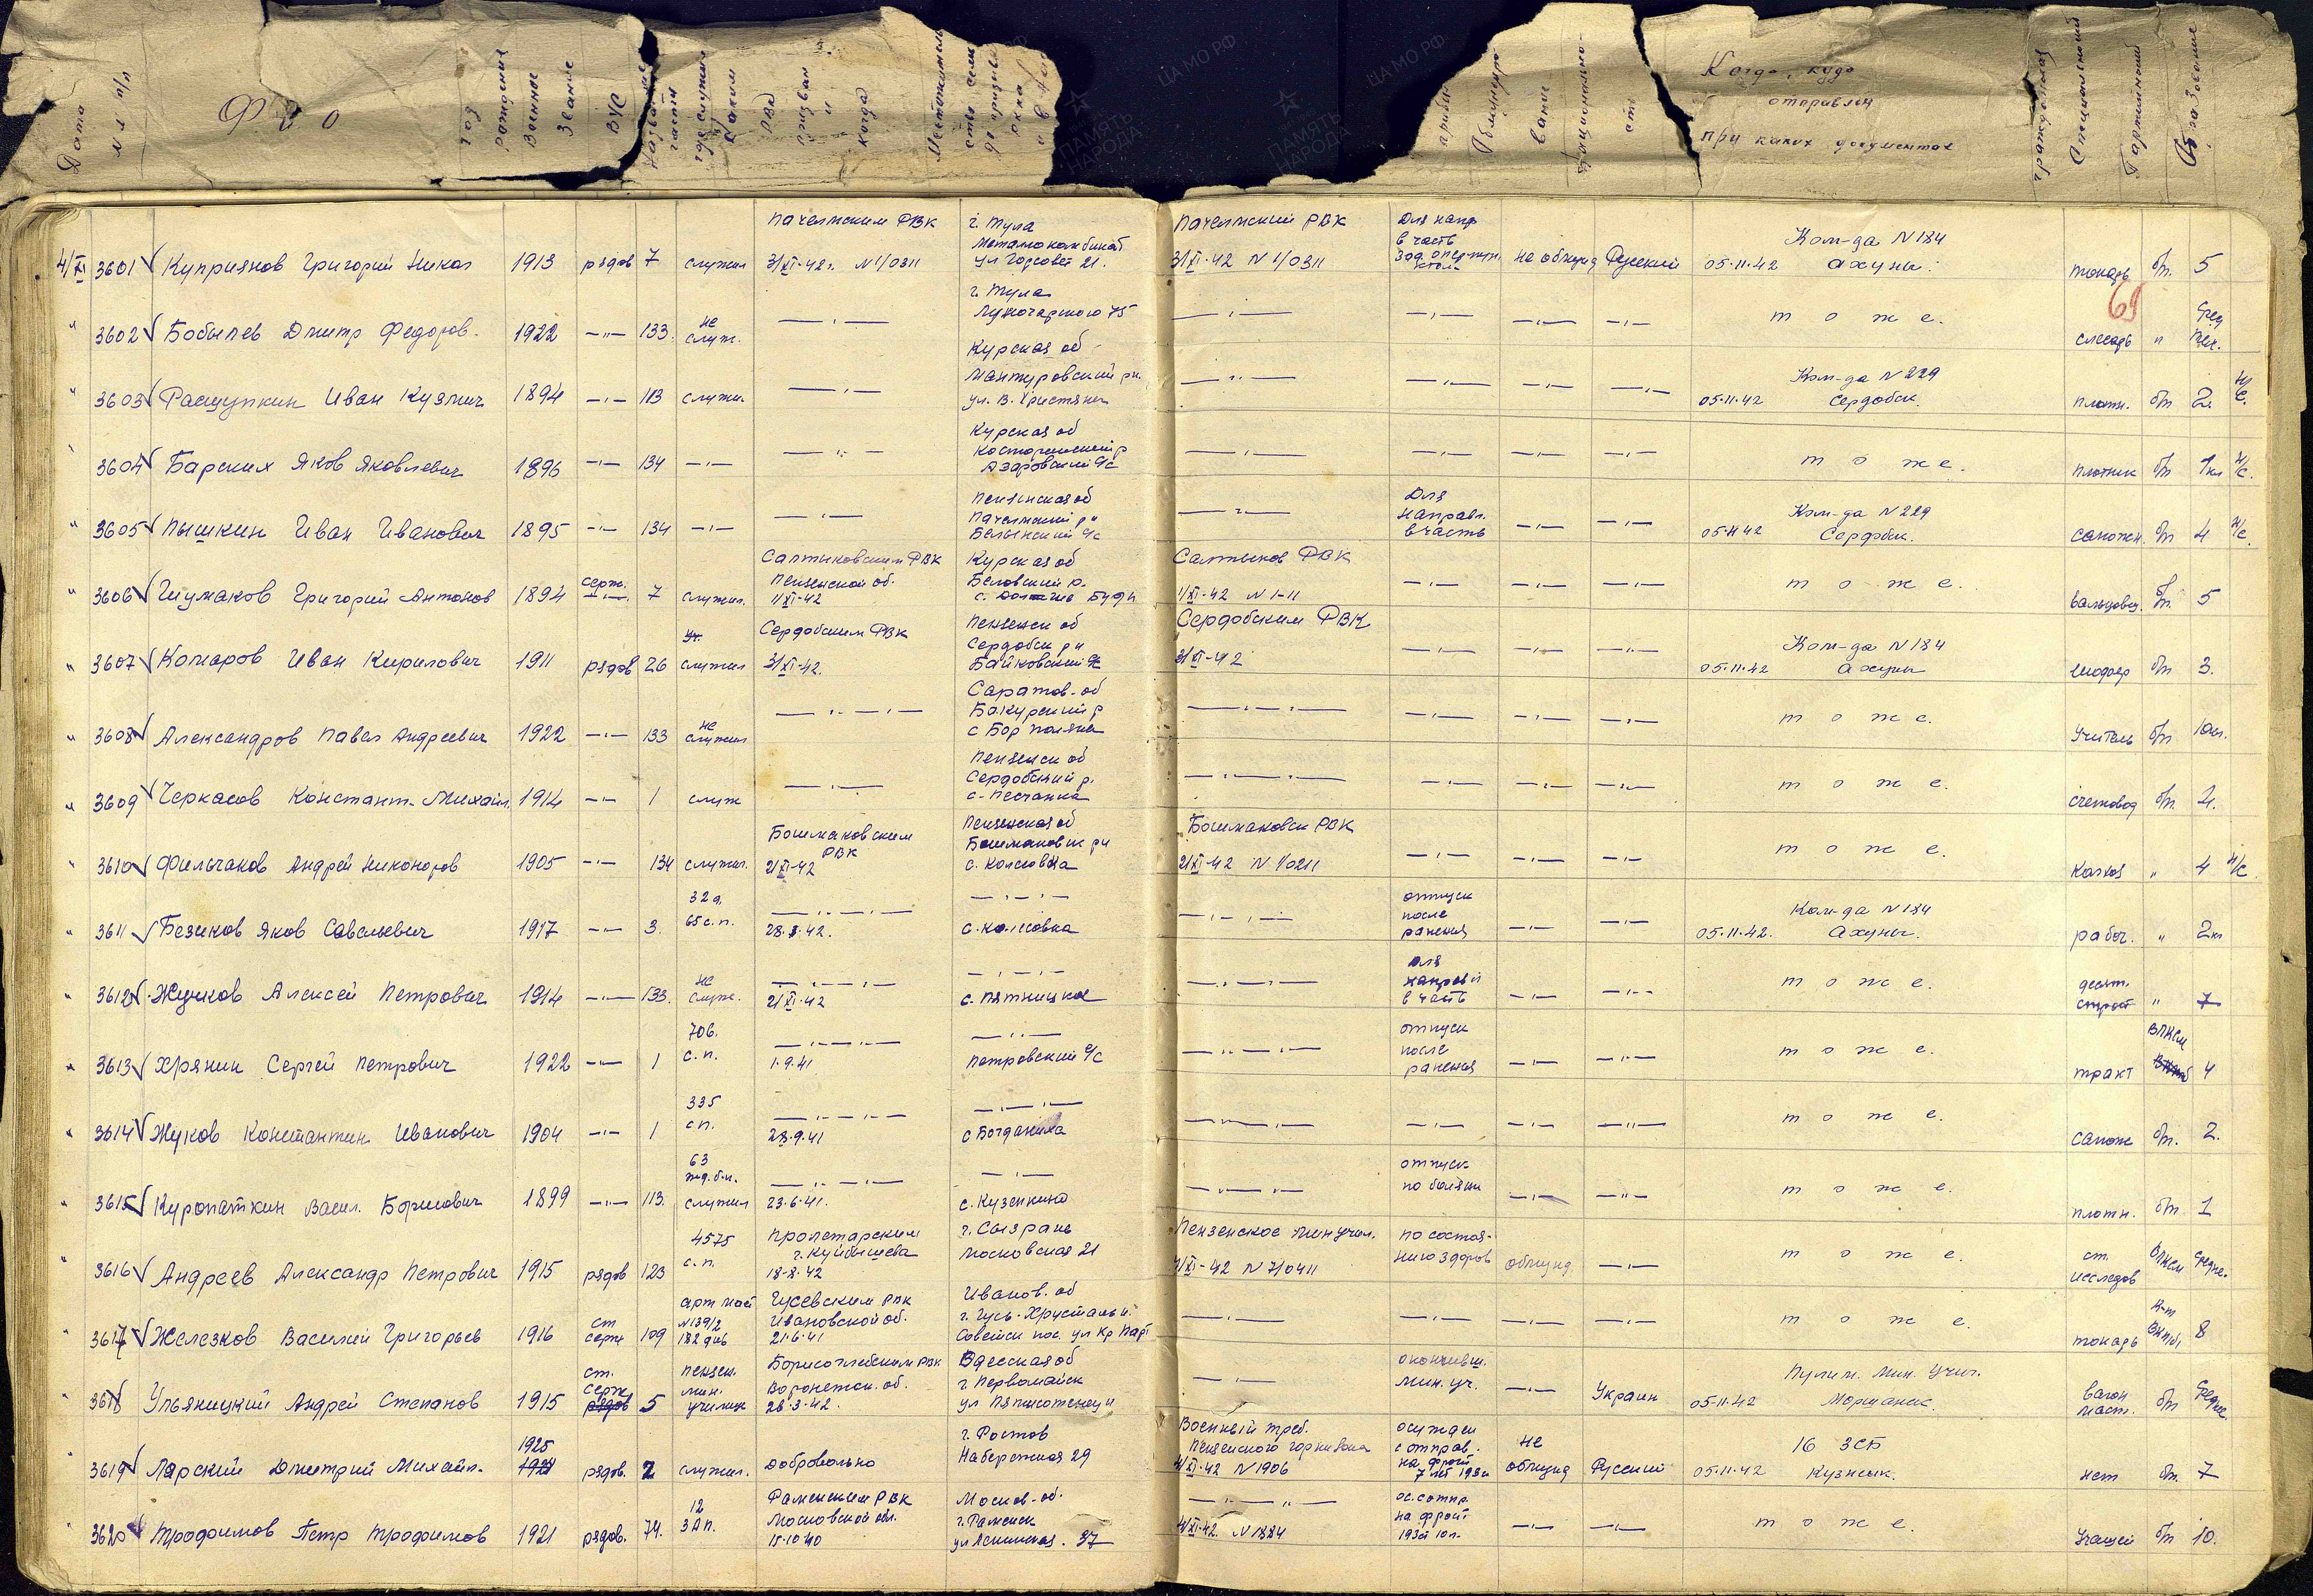 Дата
N п/п
Ф И О
год рождения
Военное звание
ВУС
Название части где служил
Каким РВК призван и когда
Когда, куда отправлен при каких документах
Партийный
Образование
ЦА МО РФ
ПАМЯТЬ НАРОДА
ЦА МО РФ
ПАМЯТЬ НАРОДА
69
4/XI 3601 Куприянов Григорий Никол 1913 рядов 7 служил Пачелмским РВК 3/XI-42г. N 1/0311 г. Тула Металлокомбинат ул Горсовет 21. Пачелмский РВК 3/XI-42 N 1/0311 Для напр в часть не обмунд Русский 05.11.42 Ком-да N 184 Ахуны. токарь б/п. 5
" 3602 Бобылев Дмитр Федоров. 1922 —"— 133. не служ. —"— г. Тула Луначарского 75 —"— —"— —"— —"— т о ж е. слесарь "
" 3603 Ращупкин Иван Кузмич 1894 —"— 113 служил —"— Курская об Мантуровский рн. —"— —"— —"— —"— 05.11.42 Ком-да N 229 Сердобск. плотн. б/п 2 н/с.
" 3604 Барских Яков Яковлевич 1896 —"— 134 —"— —"— Курская об —"— —"— —"— —"— т о ж е. плотник б/п 1кл н/с.
" 3605 Пышкин Иван Иванович 1895 —"— 134 —"— —"— Пензенская об Пачелмский р" —"— Для направл. в часть —"— —"— 05.11.42 Ком-да N 229 Сердобск. сапожн. б/п 4 н/с.
" 3606 Шумаков Григорий Антонов 1894 серж. 7 служил. Салтыковским РВК Пензенской об. 1/XI-42 Курская об Беловский р. Салтыков РВК 1/XI-42 N 1-11 —"— —"— —"— т о ж е. б/п. 5
" 3607 Комаров Иван Кирилович 1911 рядов 26 служил Сердобским РВК 3/XI-42. Пензенск об Сердобск рн Байковский с/с Сердобским РВК 3/XI-42 —"— —"— —"— 05.11.42 Ком-да N 184 Ахуны б/п 3.
" 3608 Александров Павел Андреевич 1922 —"— 133 не служил —"— Саратов. об Бакурский р с Бор Поляна —"— —"— —"— —"— т о ж е. учитель б/п 10кл.
" 3609 Черкасов Констант. Михайл. 1914 —"— 1 служ —"— Пензенск об Сердобский р. с. Песчанка —"— —"— —"— —"— т о ж е. счетовод б/п
" 3610 Фильчаков Андрей Никоноров 1905 —"— 134 служил. Башмаковским РВК 2/XI-42 Пензенская об Башмаковск рн Башмаковск РВК 2/XI-42 N 1/0211 —"— —"— —"— т о ж е. колхоз " 4 н/с.
" 3611 Безиков Яков Савельевич 1917 —"— 3. 65 с.п. —"— —"— —"— отпуск после ранения —"— —"— 05.11.42. Ком-да N 184 Ахуны. рабоч. " 2кл
" 3612 Жучков Алексей Петрович 1914 —"— 133. не служ. —"— 2/XI-42 —"— с. Пятницкое —"— для направл в часть —"— —"— т о ж е. " 7
" 3613 Хрянин Сергей Петрович 1922 —"— 1 706. с.п. —"— 1.9.41 —"— Петровский с/с —"— отпуск после ранения —"— —"— т о ж е. тракт ВЛКСМ 4
" 3614 Жуков Константин Иванович 1904 —"— 1 335 сп. —"— 28.9.41 —"— с Богданиха —"— —"— —"— —"— т о ж е. сапож б/п. 2.
" 3615 Куропаткин Васил. Борисович 1899 —"— 113. 63 служил —"— 23.6.41. —"— с. Кузенкино —"— отпуск по болезни —"— —"— т о ж е. плотн. б/п 1
" 3616 Андреев Александр Петрович 1915 рядов 123 4575 с.п. Пролетарским г. Куйбышева 18-8-42 г. Сызрань Московская 21 Пензенское мин учил. 4/XI-42 N 7/0411 по состоянию здоров обмунд. —"— т о ж е. ст. исследов ВЛКСМ средне.
" 3617 Железков Василий Григорьев 1916 ст серж 109 арт полк Гусевским РВК Ивановской об. 21.6.41 Иванов. об г. Гусь-Хрустальн. —"— —"— —"— —"— т о ж е. токарь 8
" 3618 Ульяницкий Андрей Степанов 1915 ст. серж рядов 5 пензен. мин. училищ Борисоглебским РВК Воронежск. об. 28.3.42. Одесская об г Первомайск —"— окончивш. мин. уч. —"— Украин 05.11.42 Пулем. Мин. Учил. Моршанск. вагон маст. б/п средне.
" 3619 Ларский Дмитрий Михайл. 1925 рядов. 2 служил. Добровольно г. Ростов Набережная 29 Военный триб. Пензенского гарнизона 4/XI-42 N 1906 осужден с отправ. на фронт не обмунд Русский 05.11.42 16 ЗСБ Кузнецк. нет б/п. 7
" 3620 Трофимов Петр Трофимов 1921 рядов. 74. 12 ЗАП. Раменским РВК Московской обл. 15.10.40 Москов. об. г. Раменск ул Ленинская. 37 —"— 4/XI-42. N 1884 ос. с отпр. на фронт —"— —"— т о ж е. учащий б/п 10.